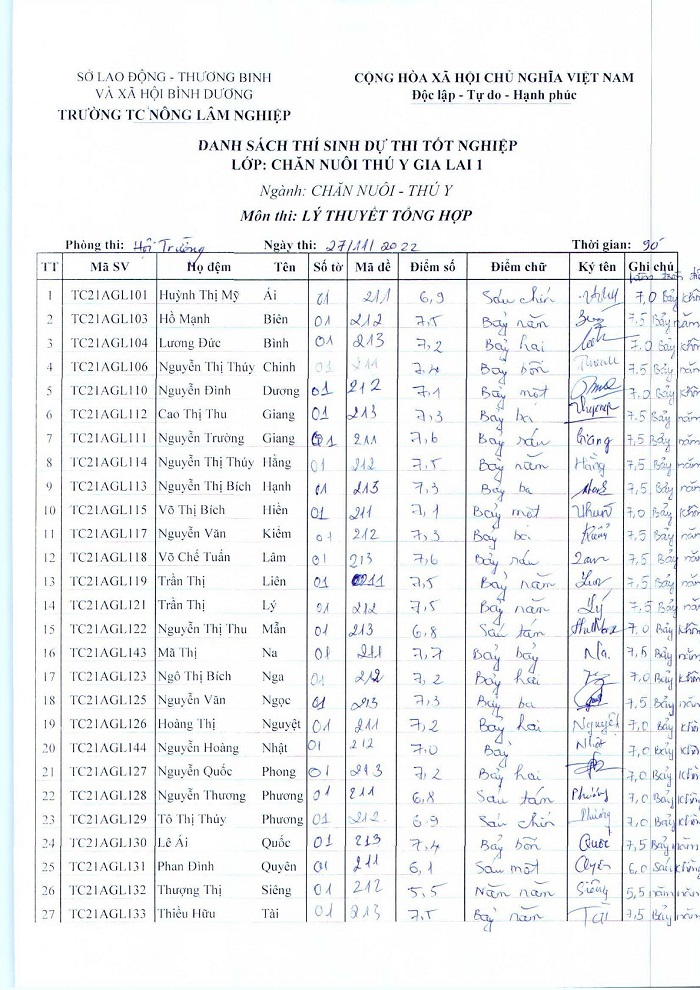 SỞ LAO ĐỘNG - THƯƠNG BINH
VÀ XÃ HỘI BÌNH DƯƠNG
TRƯỜNG TC NÔNG LÂM NGHIỆP
CỘNG HÒA XÃ HỘI CHỦ NGHĨA VIỆT NAM
Độc lập - Tự do - Hạnh phúc
DANH SÁCH THÍ SINH DỰ THI TỐT NGHIỆP
LỚP: CHĂN NUÔI THÚ Y GIA LAI 1
Ngành: CHĂN NUÔI - THÚ Y
Môn thi: LÝ THUYẾT TỔNG HỢP
Phòng thi: Hội Trường Ngày thi: 27/11/2022 Thời gian: 90'
TT Mã SV Họ đệm Tên Số tờ Mã đề Điểm số Điểm chữ Ký tên Ghi chú
1 TC21AGL101 Huỳnh Thị Mỹ Ái 01 211 6,9 Sáu chín 7,0 Bảy
2 TC21AGL103 Hồ Mạnh Biên 01 212 7,5 Bảy năm 7,5 Bảy năm
3 TC21AGL104 Lương Đức Bình 01 213 7,2 Bảy hai 7,0 Bảy
4 TC21AGL106 Nguyễn Thị Thúy Chinh 01 211 7,4 Bảy bốn 7,5 Bảy năm
5 TC21AGL110 Nguyễn Đình Dương 01 212 7,1 Bảy một 7,0 Bảy
6 TC21AGL112 Cao Thị Thu Giang 01 213 7,3 Bảy ba 7,5 Bảy năm
7 TC21AGL111 Nguyễn Trường Giang 01 211 7,6 Bảy sáu Giang 7,5 Bảy năm
8 TC21AGL114 Nguyễn Thị Thúy Hằng 01 212 7,5 Bảy năm Hằng 7,5 Bảy năm
9 TC21AGL113 Nguyễn Thị Bích Hạnh 01 213 7,3 Bảy ba 7,5 Bảy năm
10 TC21AGL115 Võ Thị Bích Hiền 01 211 7,1 Bảy một 7,0 Bảy
11 TC21AGL117 Nguyễn Văn Kiểm 01 212 7,3 Bảy ba 7,5 Bảy năm
12 TC21AGL118 Võ Chế Tuấn Lâm 01 213 7,6 Bảy sáu 7,5 Bảy năm
13 TC21AGL119 Trần Thị Liên 01 211 7,5 Bảy năm 7,5 Bảy năm
14 TC21AGL121 Trần Thị Lý 01 212 7,5 Bảy năm Lý 7,5 Bảy năm
15 TC21AGL122 Nguyễn Thị Thu Mẫn 01 213 6,8 Sáu tám 7,0 Bảy
16 TC21AGL143 Mã Thị Na 01 211 7,7 Bảy bảy Na 7,5 Bảy năm
17 TC21AGL123 Ngô Thị Bích Nga 01 212 7,2 Bảy hai 7,0 Bảy
18 TC21AGL125 Nguyễn Văn Ngọc 01 213 7,3 Bảy ba 7,5 Bảy năm
19 TC21AGL126 Hoàng Thị Nguyệt 01 211 7,2 Bảy hai Nguyệt 7,0 Bảy
20 TC21AGL144 Nguyễn Hoàng Nhật 01 212 7,0 Bảy Nhật 7,0 Bảy
21 TC21AGL127 Nguyễn Quốc Phong 01 213 7,2 Bảy hai 7,0 Bảy
22 TC21AGL128 Nguyễn Thương Phương 01 211 6,8 Sáu tám Phương 7,0 Bảy
23 TC21AGL129 Tô Thị Thúy Phương 01 212 6,9 Sáu chín Phương 7,0 Bảy
24 TC21AGL130 Lê Ái Quốc 01 213 7,4 Bảy bốn Quốc 7,5 Bảy năm
25 TC21AGL131 Phan Đình Quyên 01 211 6,1 Sáu một 6,0 Sáu
26 TC21AGL132 Thượng Thị Siêng 01 212 5,5 Năm năm Siêng 5,5 năm năm
27 TC21AGL133 Thiều Hữu Tài 01 213 7,5 Bảy năm Tài 7,5 Bảy năm